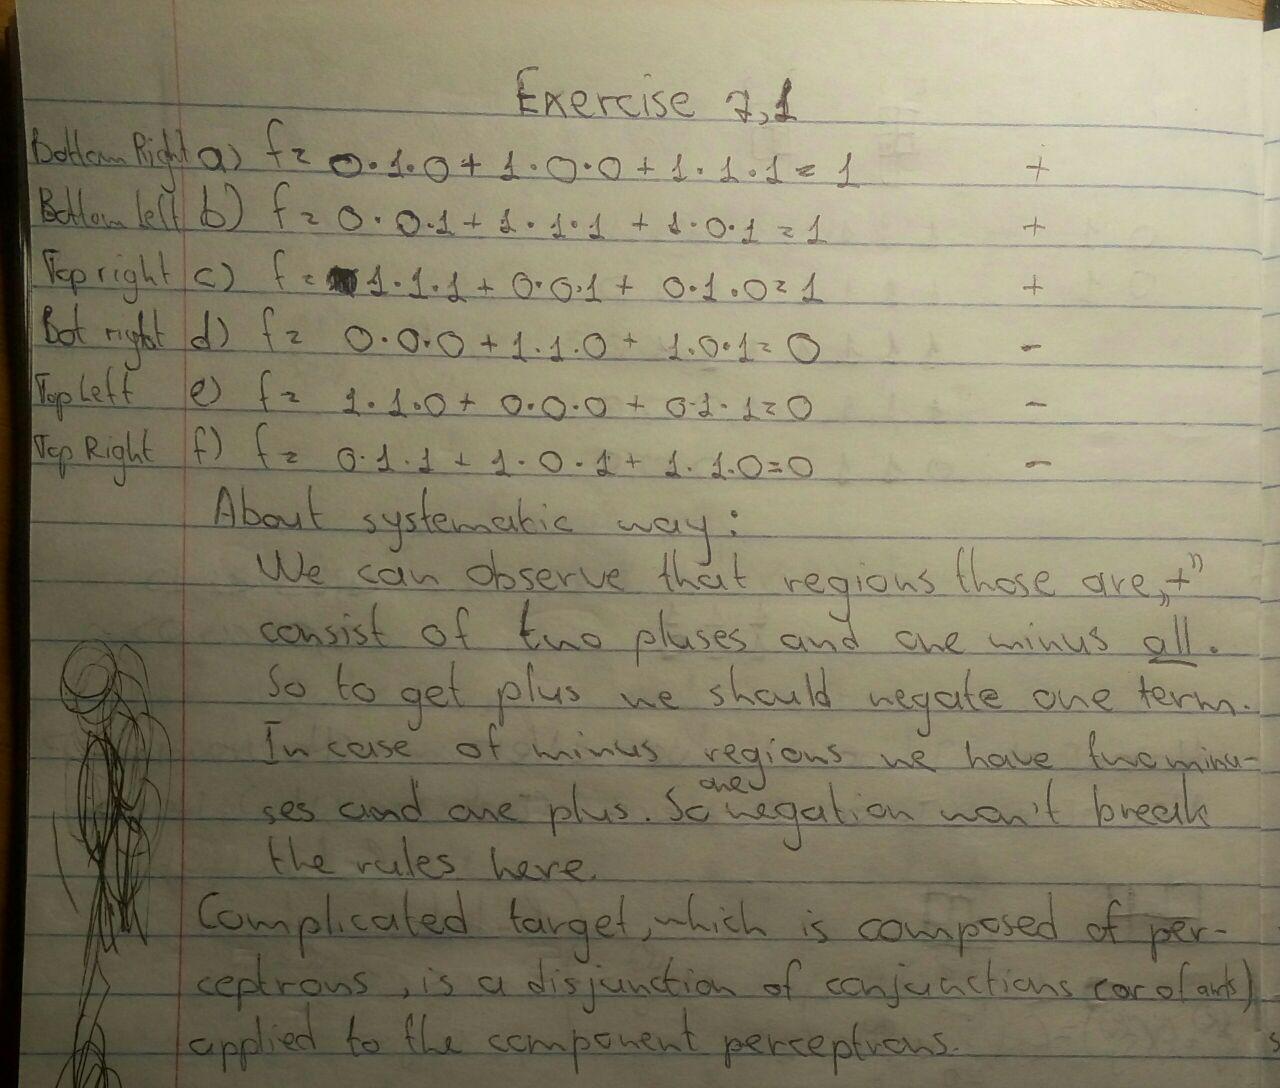 Exercise 7,1
Bottom Right a) f = 0·1·0 + 1·0·0 + 1·1·1 = 1 +
Bottom left b) f = 0·0·1 + 1·1·1 + 1·0·1 = 1 +
Top right c) f = 1·1·1 + 0·0·1 + 0·1·0 = 1 +
Bot right d) f = 0·0·0 + 1·1·0 + 1·0·1 = 0 -
Top Left e) f = 1·1·0 + 0·0·0 + 0·1·1 = 0 -
Top Right f) f = 0·1·1 + 1·0·1 + 1·1·0 = 0 -
About systematic way:
We can observe that regions those are „+”
consist of two pluses and one minus all.
So to get plus we should negate one term.
In case of minus regions we have two minu-
ses and one plus. So one negation won't break
the rules here.
Complicated target, which is composed of per-
ceptrons, is a disjunction of conjunctions (or of ants)
applied to the component perceptrons.